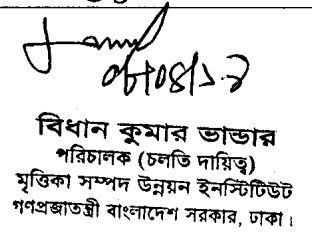 বিধান কুমার ভান্ডার
পরিচালক (চলতি দায়িত্ব)
মৃত্তিকা সম্পদ উন্নয়ন ইনস্টিটিউট
গণপ্রজাতন্ত্রী বাংলাদেশ সরকার, ঢাকা।